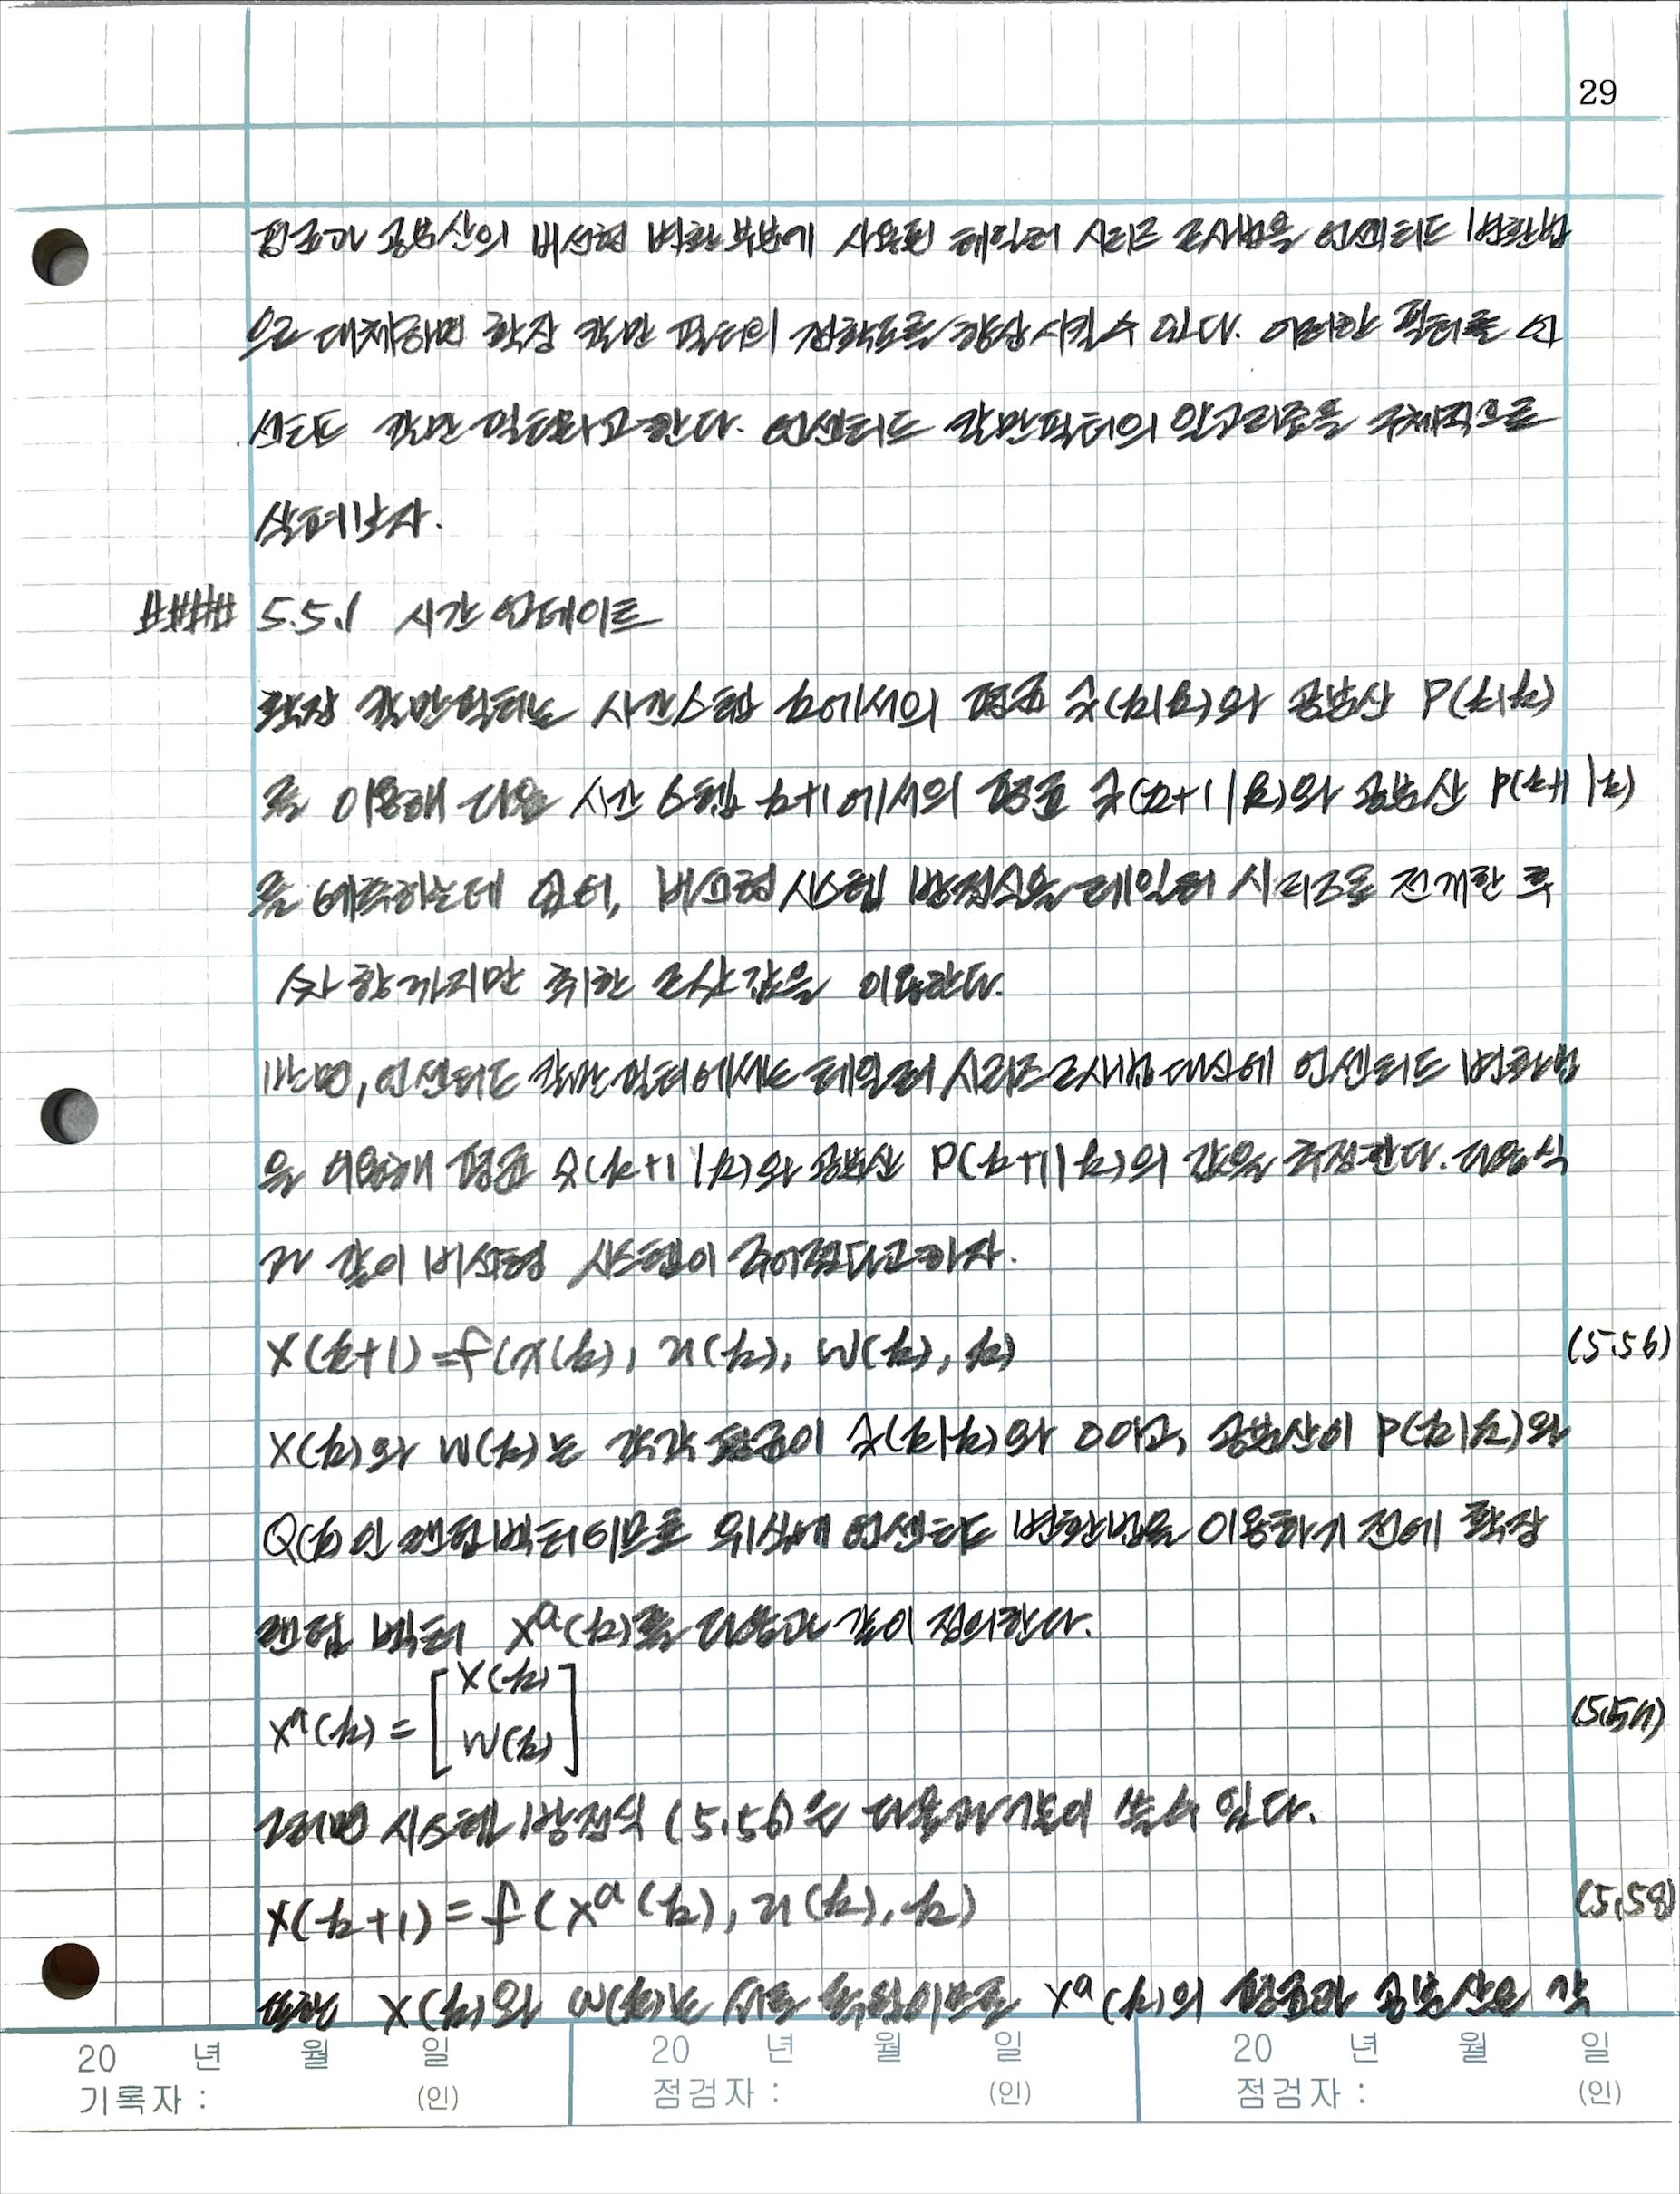 29
평균과 공분산의 비선형 변환 부분에 사용된 테일러 시리즈 근사법을 언센티드 변환법
으로 대체하면 확장 칼만 필터의 정확도를 향상 시킬 수 있다. 이러한 필터를 언
센티드 칼만 필터라고 한다. 언센티드 칼만필터의 알고리즘을 구체적으로
살펴보자.
#### 5.5.1 시간 업데이트
확장 칼만필터는 시간스텝 k에서의 평균 x̂(k|k)와 공분산 P(k|k)
를 이용해 다음 시간 스텝 k+1에서의 평균 x̂(k+1|k)와 공분산 P(k+1|k)
를 예측하는데 있어, 비선형 시스템 방정식을 테일러 시리즈로 전개한 후
1차 항까지만 취한 근삿값을 이용한다.
반면, 언센티드 칼만 필터에서는 테일러 시리즈 근사법 대신에 언센티드 변환법
을 이용해 평균 x̂(k+1|k)와 공분산 P(k+1|k)의 값을 추정한다. 다음식
과 같이 비선형 시스템이 주어졌다고 하자.
x(k+1)=f(x(k), u(k), w(k), k) (5.56)
x(k)와 w(k)는 각각 평균이 x̂(k|k)와 0이고, 공분산이 P(k|k)와
Q(k)인 랜덤 벡터이므로 위식에 언센티드 변환법을 이용하기 전에 확장
랜덤 벡터 xᵃ(k)를 다음과 같이 정의한다.
xᵃ(k) = [x(k) w(k)] (5.57)
그러면 시스템 방정식 (5.56)은 다음과 같이 쓸 수 있다.
x(k+1) = f(xᵃ(k), u(k), k) (5.58)
또한 x(k)와 w(k)는 서로 독립이므로 xᵃ(k)의 평균과 공분산은 각
20 년 월 일 20 년 월 일 20 년 월 일
기록자 : (인) 점검자 : (인) 점검자 : (인)